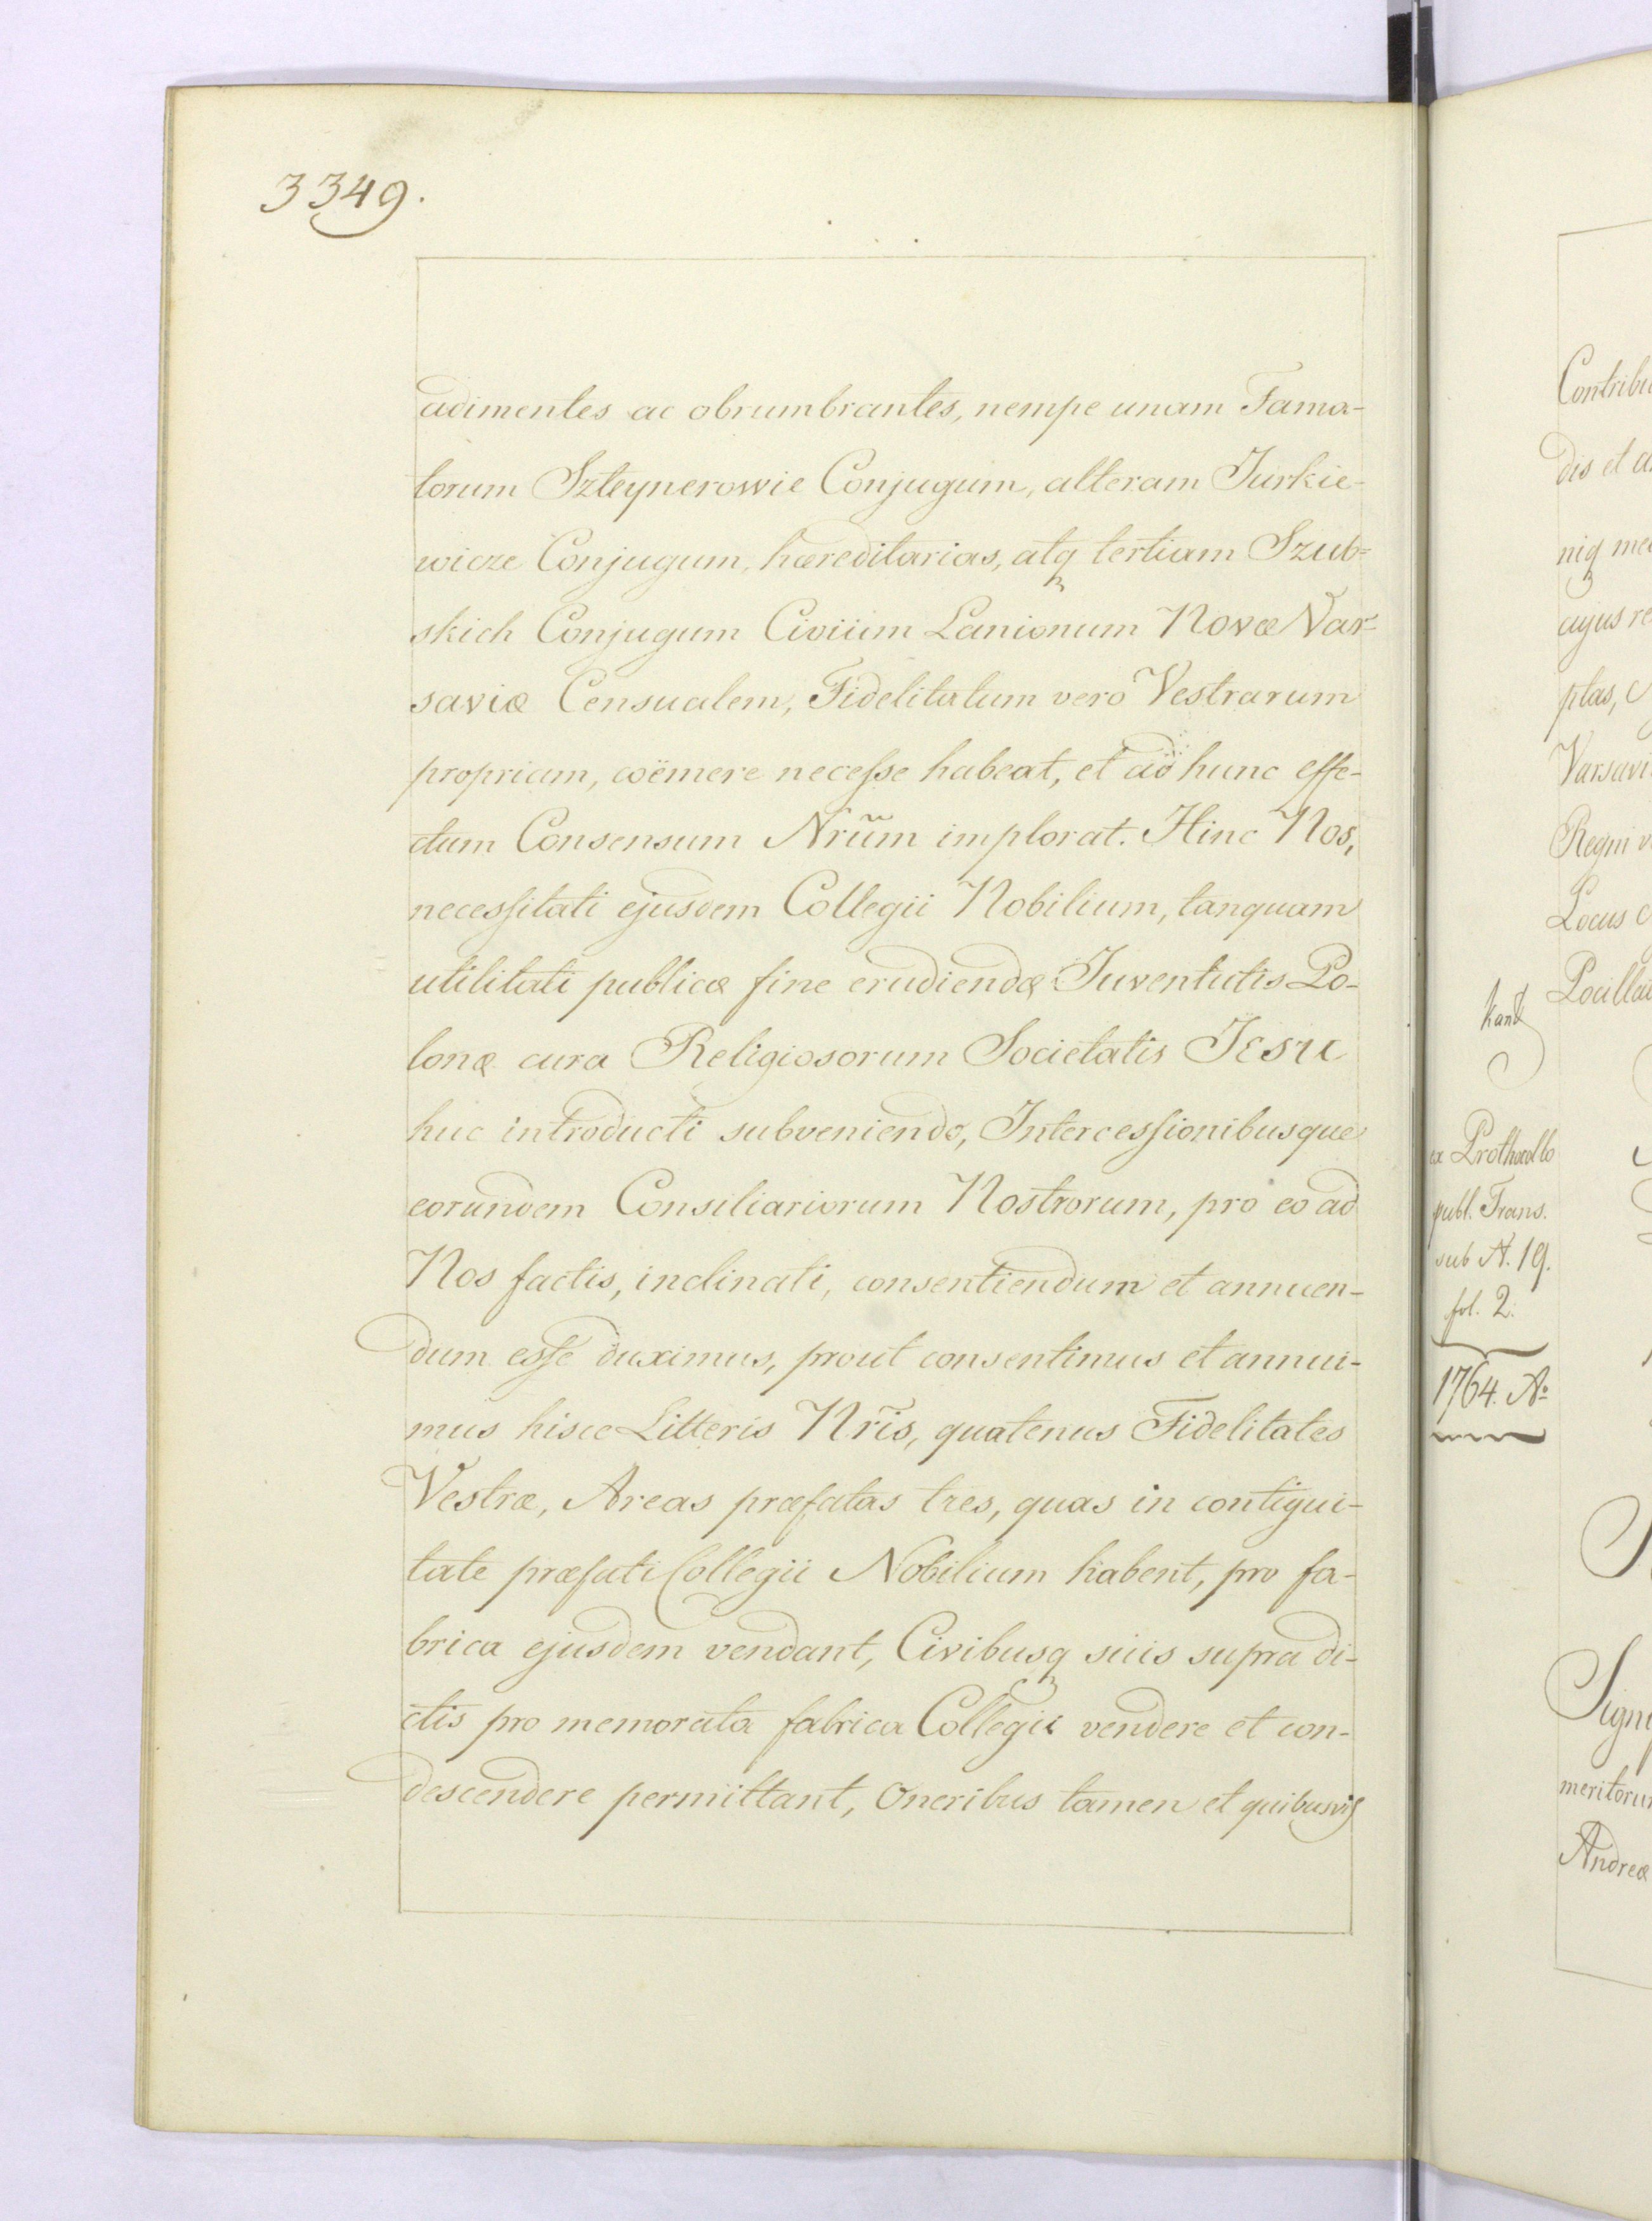 3349.
adimentes ac obrumbrantes, nempe unam Fama-
torum Szteynerowie Conjugum, alteram Jurkie-
wicze Conjugum, hæreditarias, atq tertiam Szub=
skich Conjugum Civium Lanionum Novæ Var=
saviæ Censualem, Fidelitatum vero Vestrarum
propriam, coëmere necesse habeat, et ad hunc effe-
ctum Consensum Nrūm implorat. Hinc Nos,
necessitati ejusdem Collegii Nobilium, tanquam
utilitati publicæ fine erudiendæ Juventutis Po-
lonæ cura Religiosorum Societatis Jesu
huc introducti subveniendo, Intercessionibusque
eorundem Consiliariorum Nostrorum, pro eo ad
Nos factis, inclinati, consentiendum et annuen-
dum esse duximus, prout consentimus et annui-
mus hisce Litteris Nrīs, quatenus Fidelitates
Vestræ, Areas præfatas tres, quas in contigui-
tate præfati Collegii Nobilium habent, pro fa-
brica ejusdem vendant, Civibusq suis supra di-
ctis pro memorata fabrica Collegii vendere et con-
descendere permittant, Oneribus tamen et quibusvis
Contribu
dis et a
niq me
cujus re
ptas,
Varsavi
Regni v
Locus C
Pocillat
ex Prothocollo
publ. Trans.
sub N. 19.
fol. 2.
1764. Ao
Sign
meritoru
Andreæ